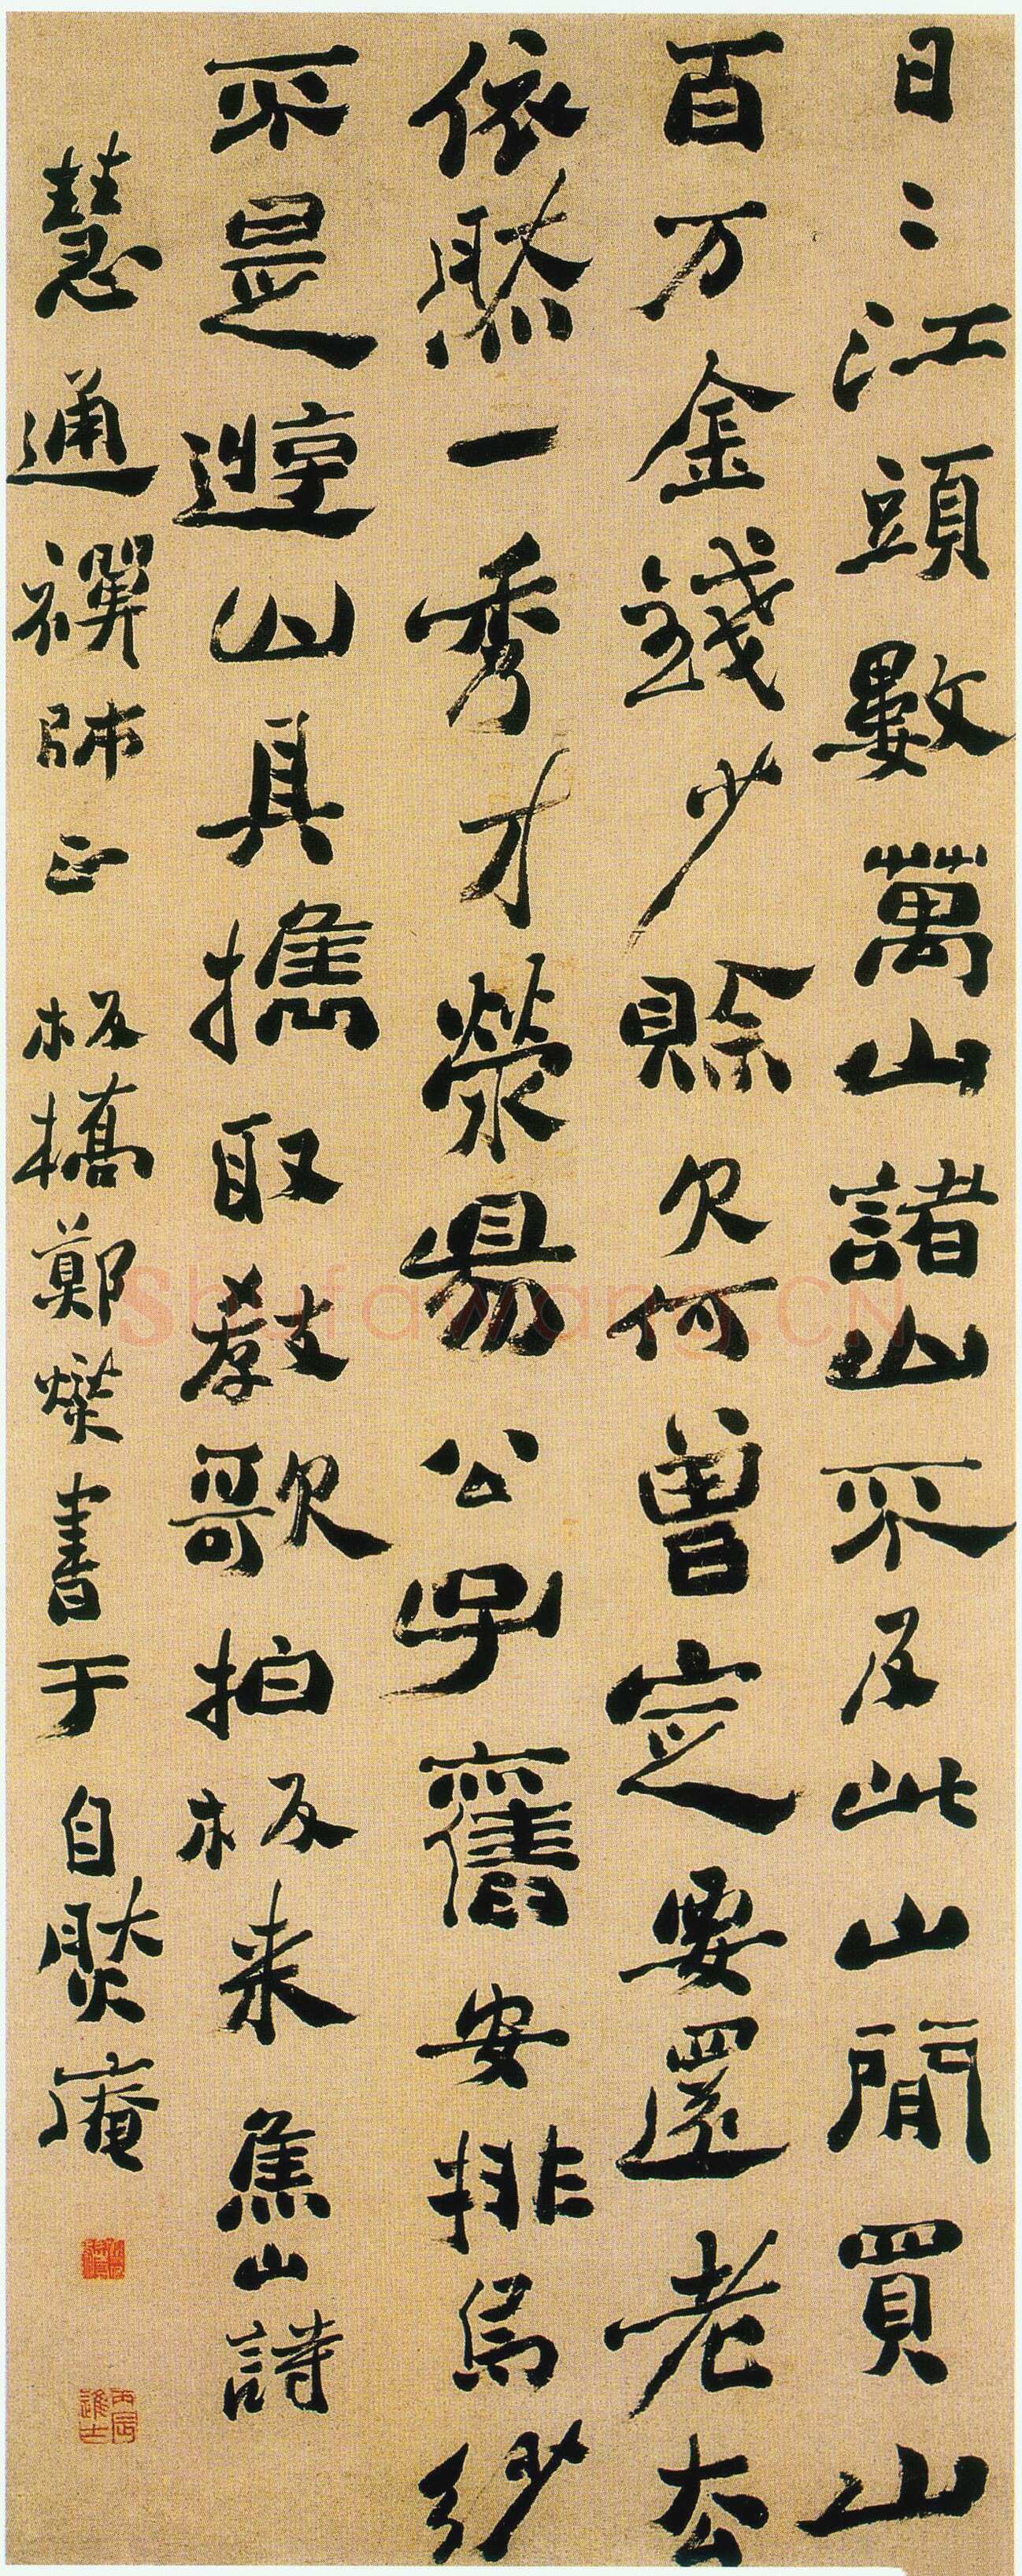 日〻江頭數萬山諸山不及此山閒買山
百万金錢少賒欠何曾定要還老去
依然一秀才滎昜公子舊安排烏紗
不是遊山具攜取教歌拍板来焦山詩
慧通禪師正 板橋鄭燮書于自然庵
丙辰進士
Shufawang.CN